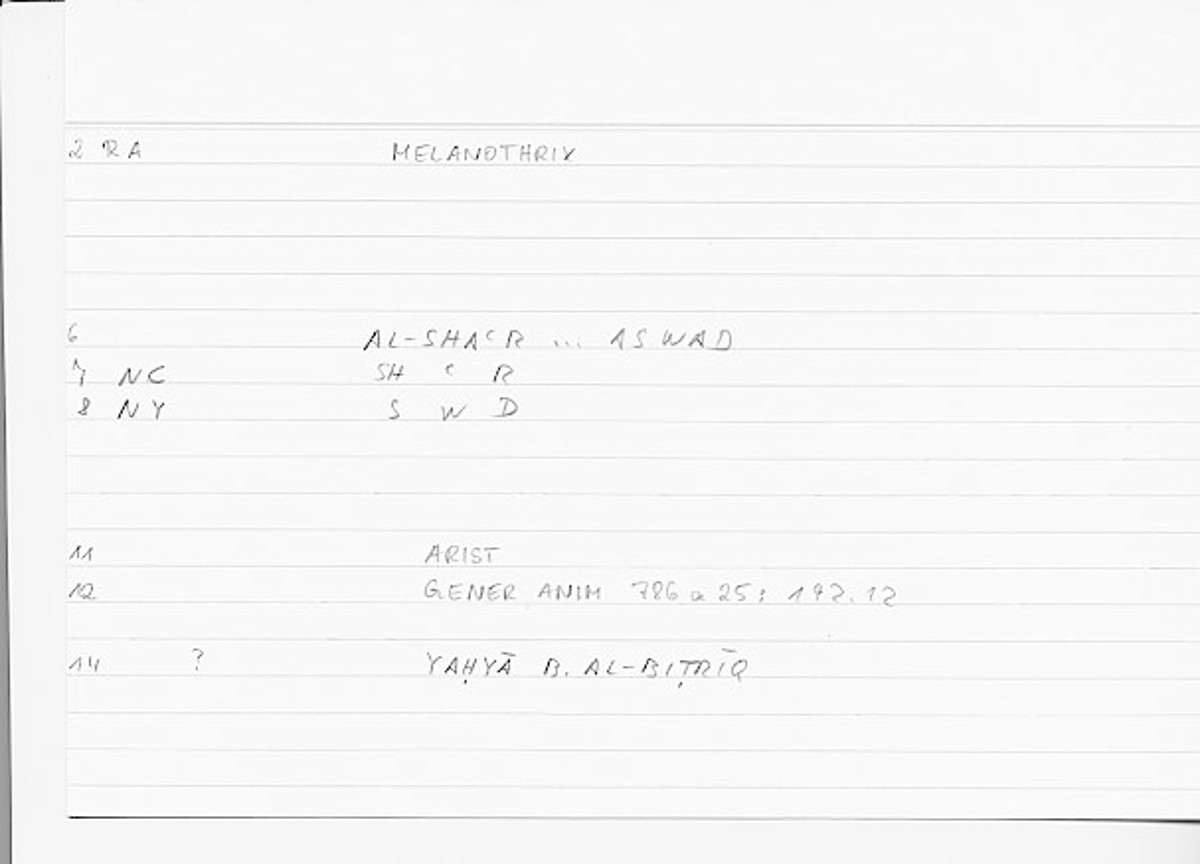 2 RA MELANOTHRIX
6 AL-SHAʿR ... ASWAD
7 NC SH ʿ R
8 NY S W D
11 ARIST
12 GENER ANIM 786 a 25 : 192.12
14 ? YAḤYĀ B. AL-BIṬRĪQ